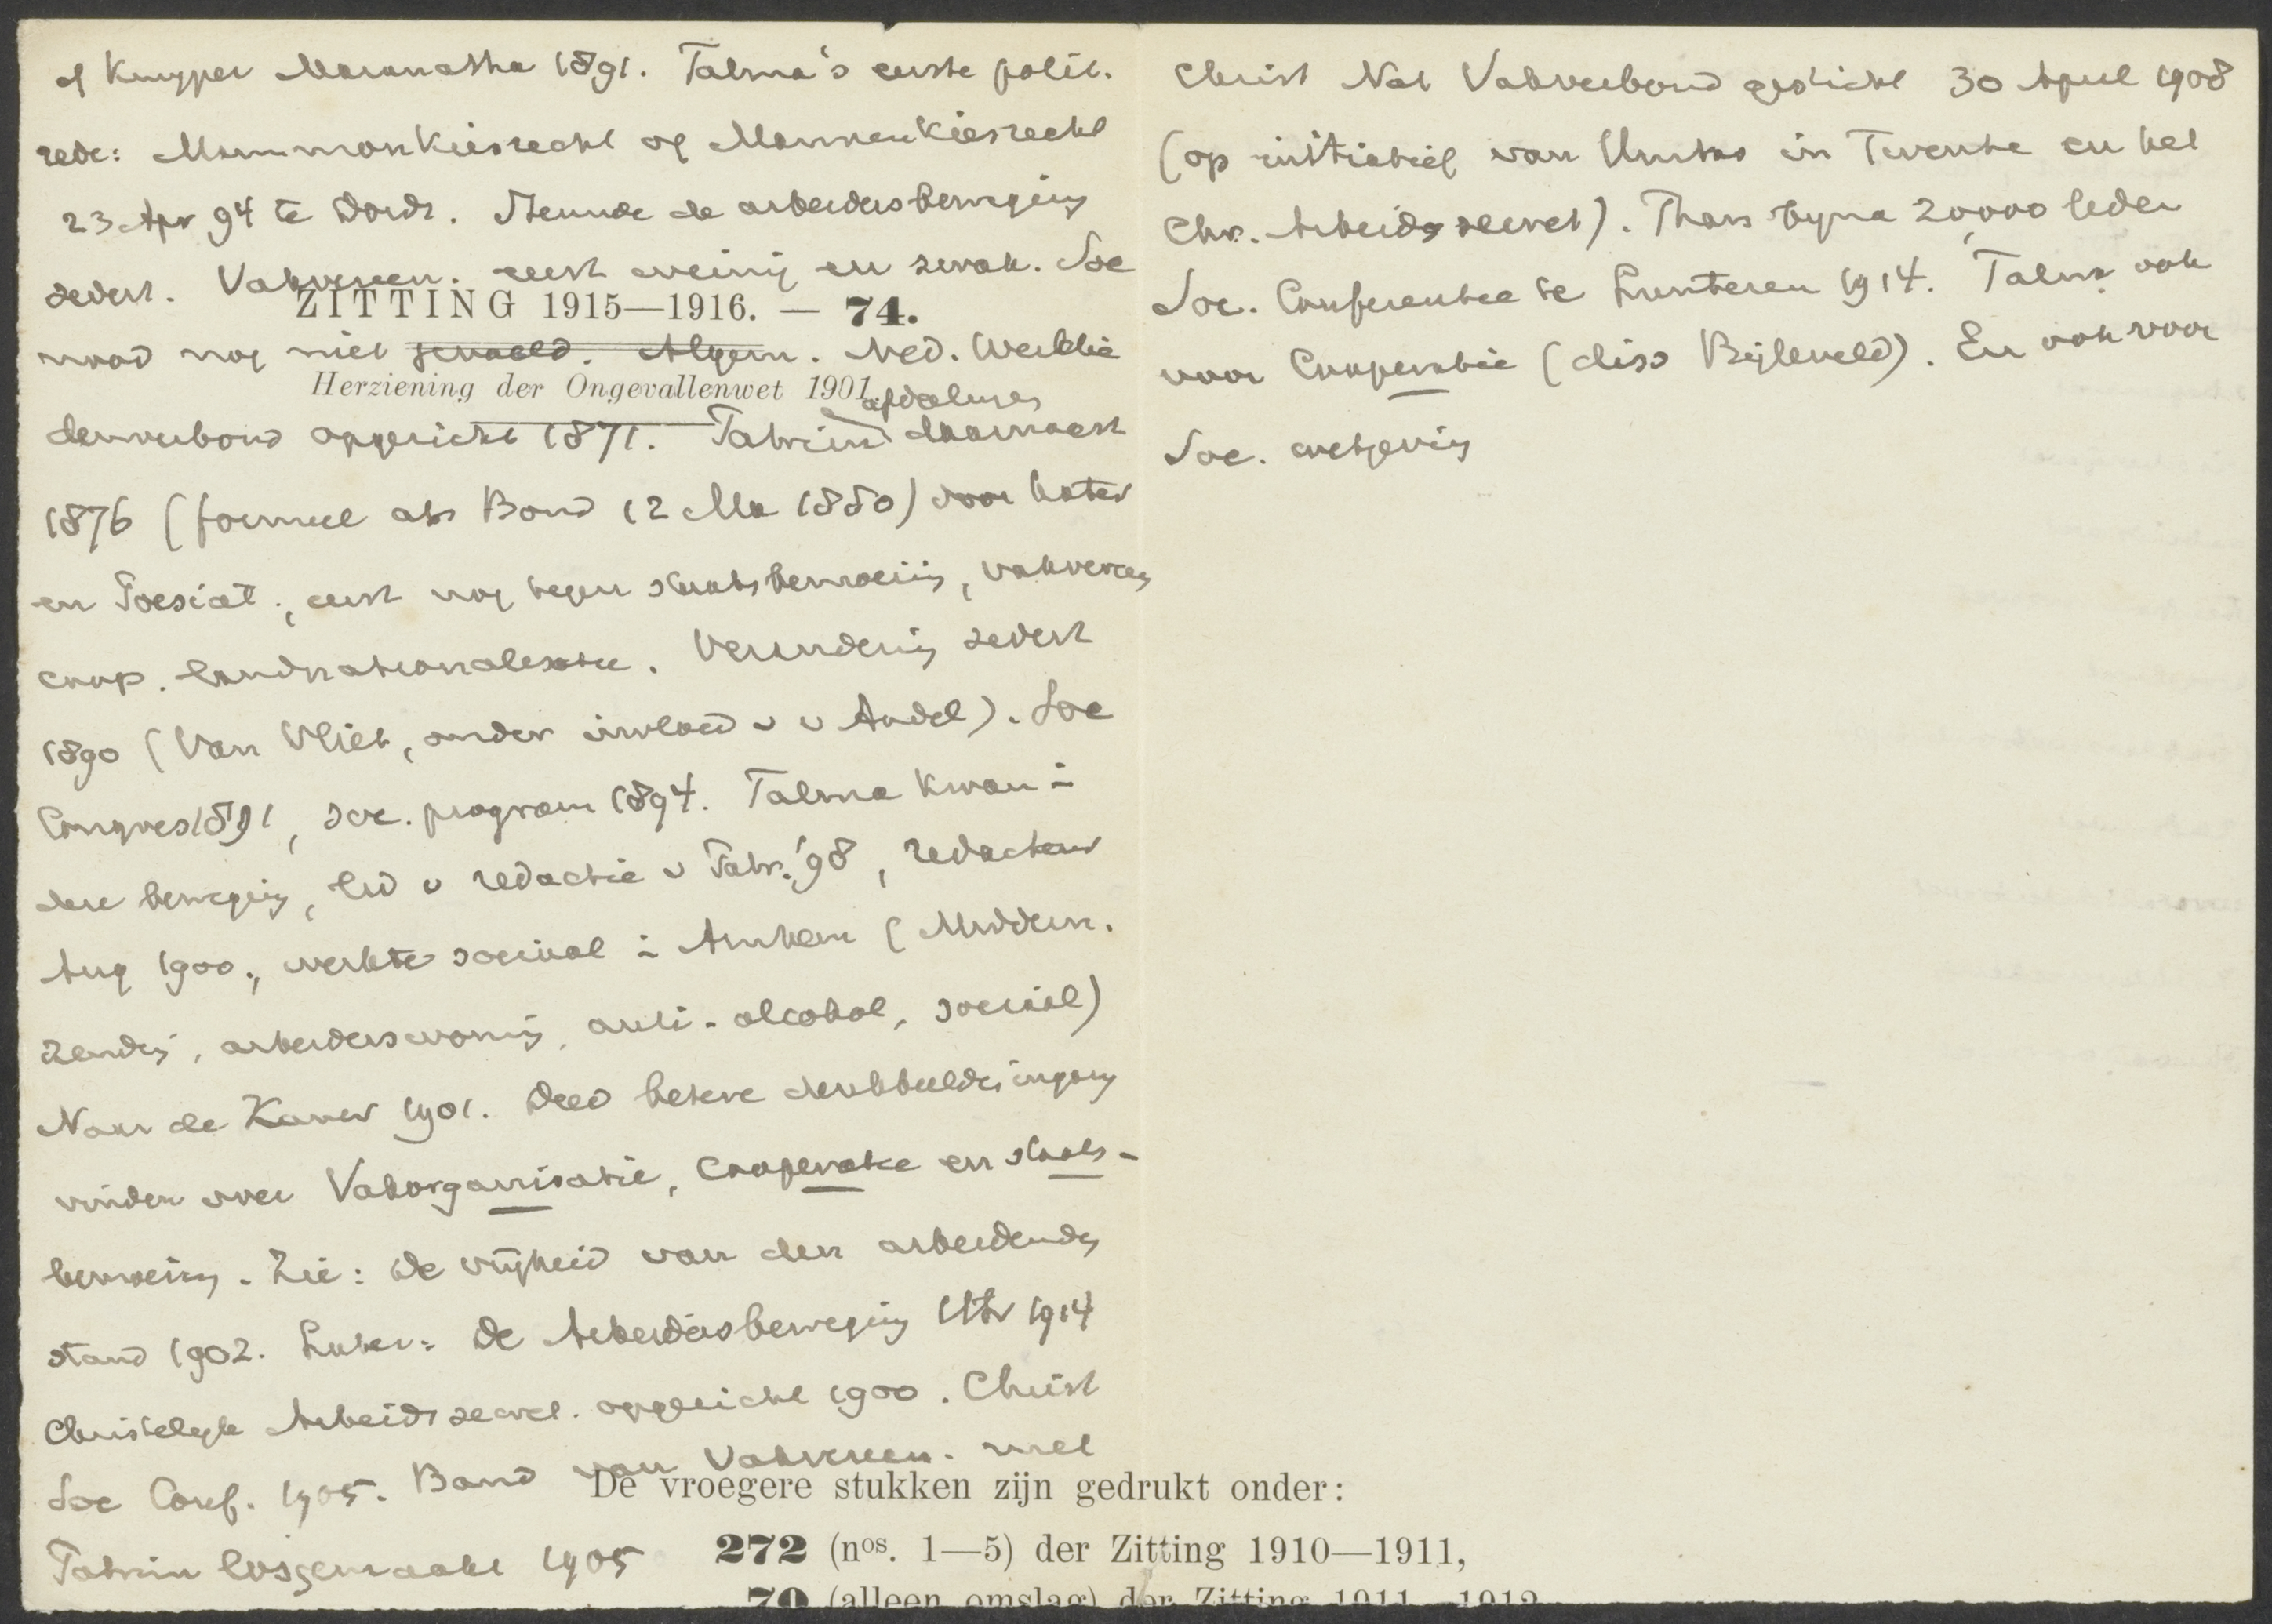 cf Kuyper Maranatha 1891. Talma's eerste polit.
rede: Mammonkiesrecht of Mannenkiesrecht
23 Apr 94 te Dordr. Steunde de arbeidersbeweging
sedert. Vakvereen. eerst weinig en zwak. Soc
ZITTING 1915—1916. — 74.
nood nog niet gevoeld. Algem. Ned. Werklie
Herziening der Ongevallenwet 1901.
denverbond opgericht 1871. Patrim daarnaast
1876 (formeel als Bond 12 Ma 1880) door Kater
en Poesiat, eerst nog tegen staatsbemoeiing, vakvereeg
coop. landnationalisatie. Verandering sedert
1890 (Van Vliet, onder invloed v v Andel). Soc
Congres 1891, soc. program 1894. Talma kwam in
deze beweging, lid v redactie v Patr. '98, redacteur
Aug 1900, werkte sociaal in Arnhem (Middern.
zending, arbeiderswoning, anti-alcohol, sociaal)
Naar de Kamer 1901. Deed betere denkbeelden ingang
vinden over Vakorganisatie, Cooperatie en staats-
bemoeiing. Zie: De vrijheid van den arbeidenden
stand 1902. Later: De Arbeidersbeweging Utr 1914
Christelyk Arbeidssecret. opgericht 1900. Christ
Soc Conf. 1905. Band van Vakvereen. met
De vroegere stukken zijn gedrukt onder:
Patrim losgemaakt 1905
272 (nos. 1—5) der Zitting 1910—1911,
70 (alleen omslag) der Zitting 1911—1912
Christ Nat Vakverbond gesticht 30 April 1908
(op initiatief van Unitas in Twente en het
Chr. Arbeidssecret). Thans byna 20,000 leden
Soc. Conferentie te Lunteren 1914. Talma ook
voor Cooperatie (diss Bijleveld). En ook voor
Soc. wetgeving